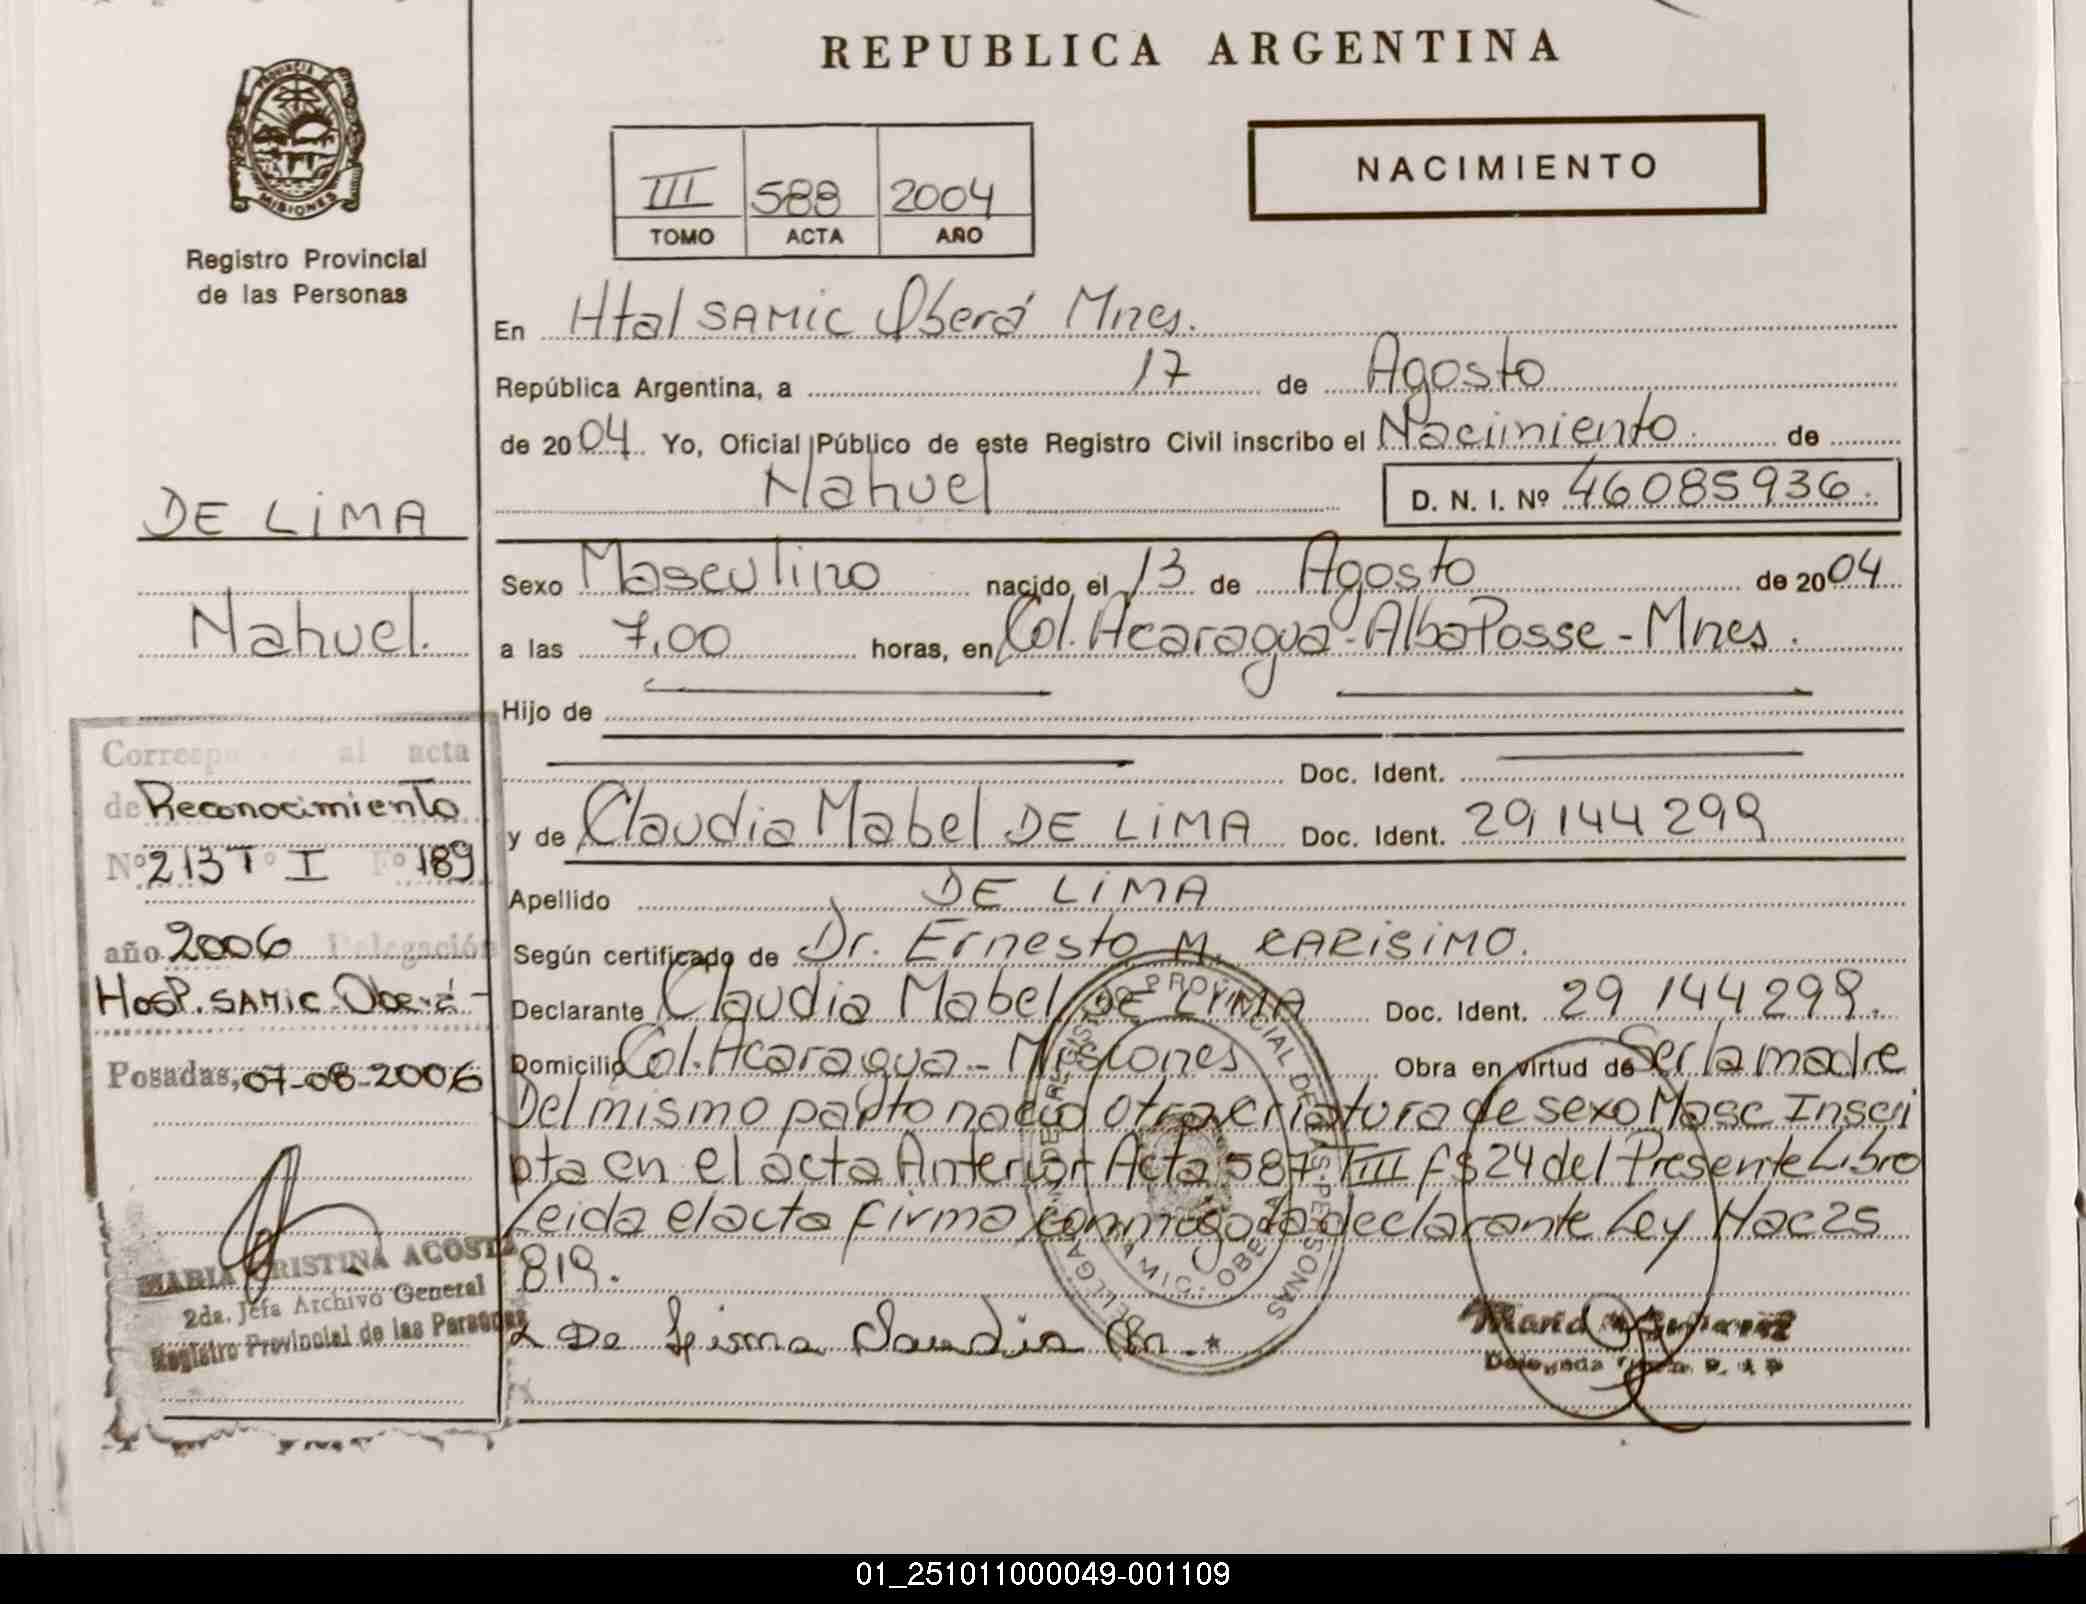 REPUBLICA ARGENTINA
PROVINCIA DE MISIONES
Registro Provincial
de las Personas
NACIMIENTO
III 588 2004
TOMO ACTA AÑO
En Htal SAMIC Oberá Mnes.
República Argentina, a 17 de Agosto
de 2004 Yo, Oficial Público de este Registro Civil inscribo el Nacimiento de
Nahuel D. N. I. Nº 46085936.
Sexo Masculino nacido el 13 de Agosto de 2004
a las 7,00 horas, en Col. Acaragua - Alba Posse - Mnes.
Hijo de
Doc. Ident.
y de Claudia Mabel DE LIMA Doc. Ident. 29 144 299
Apellido DE LIMA
Según certificado de Dr. Ernesto M. CARISIMO.
Declarante Claudia Mabel DE LIMA Doc. Ident. 29 144 299.
Domicilio Col. Acaragua - Misiones Obra en virtud de Ser la madre
Del mismo parto nacio otra criatura de sexo Masc Inscri
pta en el acta Anterior Acta 587 TIII fs 24 del Presente Libro
Leida el acta firma conmigo la declarante Ley Nac 25
819.
De Lima Claudia M.
DELEGACION DEL REGISTRO PROVINCIAL DE LAS PERSONAS
OBERA
Delegada
DE LIMA
Nahuel.
Corresponde al acta
de Reconocimiento
Nº 213 Tº I Fº 189
año 2006 Delegación
Hosp. SAMIC Oberá -
Posadas, 07-08-2006
MARIA CRISTINA ACOSTA
2da. Jefa Archivo General
Registro Provincial de las Personas
01_251011000049-001109